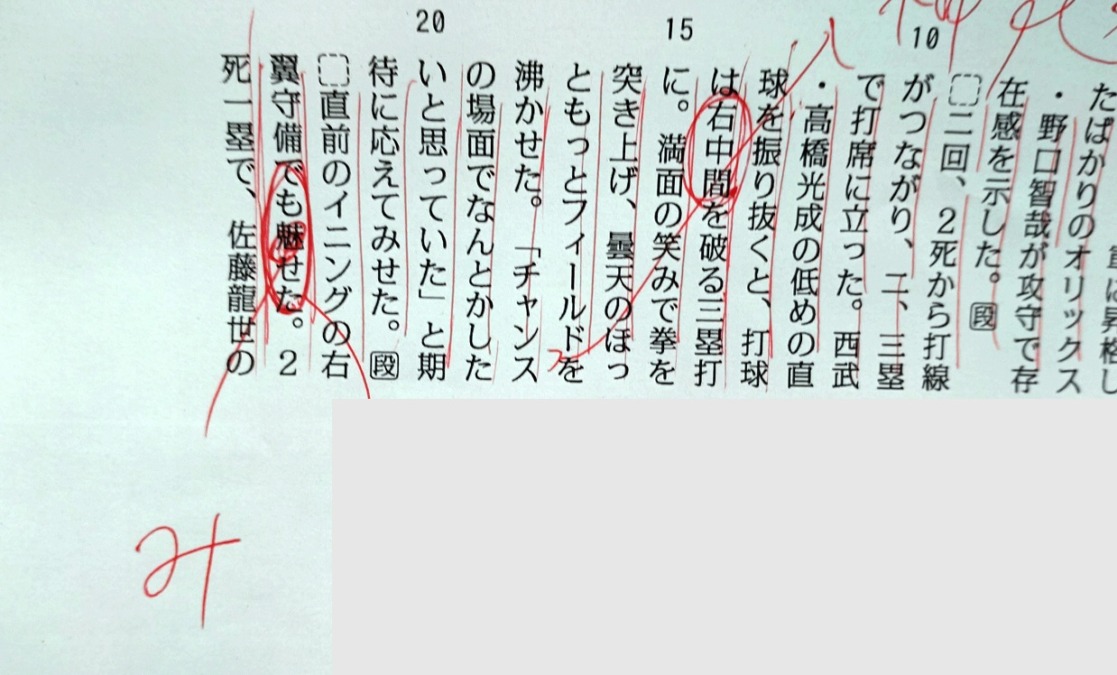 10
15
20
たばかりのオリックス
・野口智哉が攻守で存
在感を示した。段
二回、2死から打線
がつながり、二、三塁
で打席に立った。西武
・高橋光成の低めの直
球を振り抜くと、打球
は右中間を破る三塁打
に。満面の笑みで拳を
突き上げ、曇天のほっ
ともっとフィールドを
沸かせた。「チャンス
の場面でなんとかした
いと思っていた」と期
待に応えてみせた。段
直前のイニングの右
翼守備でも魅せた。2
死一塁で、佐藤龍世の
み